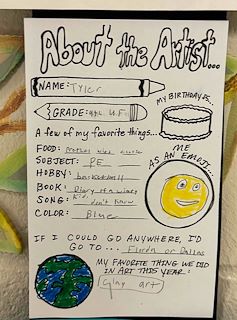 About the Artist...
NAME: Tyler
MY BIRTHDAY IS...
GRADE:
A few of my favorite things...
FOOD:
ME
AS AN EMOJI...
SUBJECT: PE
HOBBY: basketball
BOOK: Diary of a wimpy
Kid
SONG: don't know
COLOR: Blue
IF I COULD GO ANYWHERE, I'D
GO TO... or Dallas
MY FAVORITE THING WE DID
IN ART THIS YEAR:
Clay art